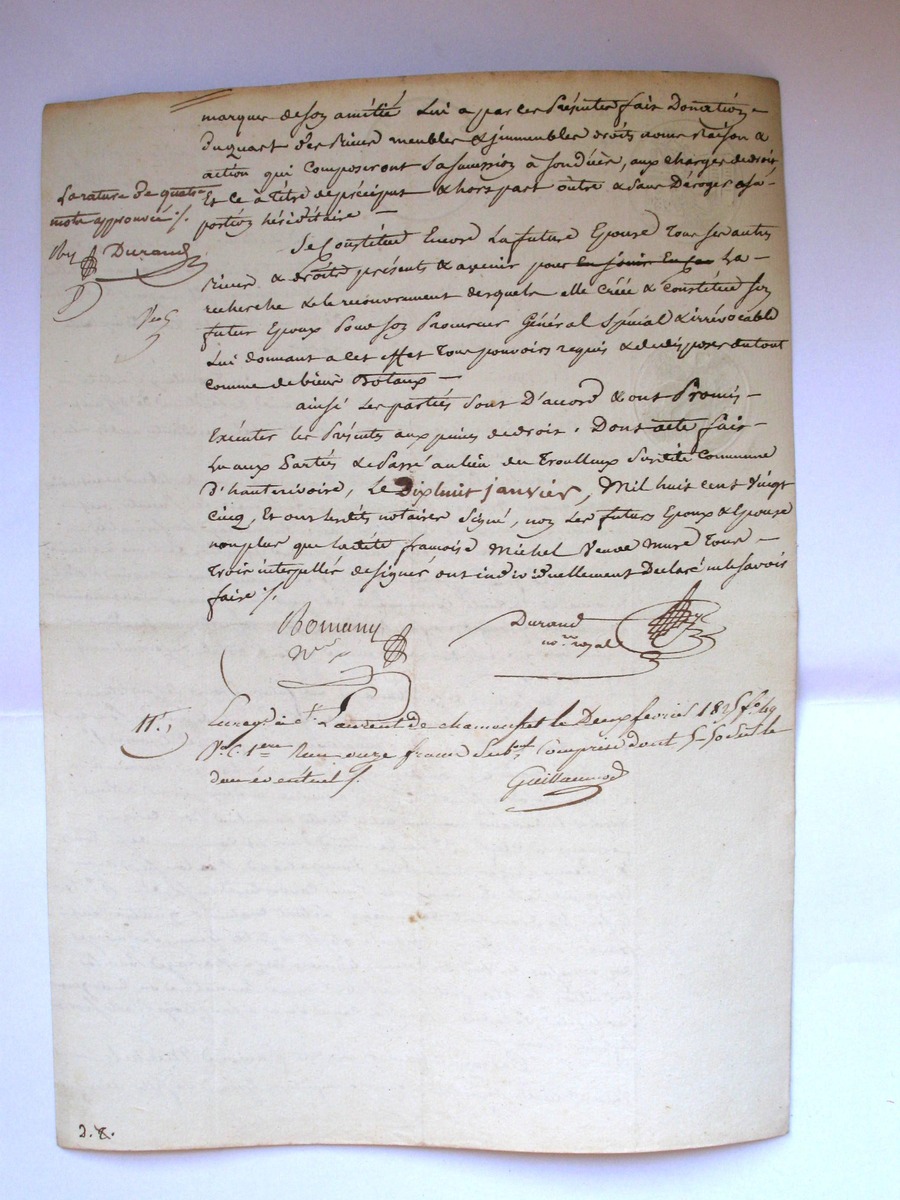 marque de son amitié lui a par ces présentes fait Donation
du quart des Biens meubles & immeubles droits noms Raison &
action qui composeront sa succession à son décès, aux charges de droit
Et ce à titre de préciput & hors part outre & sans Déroger à sa
portion héréditaire —
La rature de quatre
mots approuvée ./.
Durand
Se Constitue Encore La future Epouse Tous ses autres
Biens & droits présents & avenir pour en jouir La
recherche & le recouvrement desquels elle créée & constitue son
futur Epoux Pour son Procureur Général Spécial & irrévocable
Lui donnant a cet effet Tous pouvoirs requis & de disposer du tout
comme de biens Dotaux —
ainsi Les parties Sont D'accord & ont Promis —
Exécuter les présentes aux peines de droit. Dont acte fait —
Lu aux Parties & Passé au lieu du Troulleux Susdite Commune
d'hauterivoire, Le Dix huit janvier, Mil huit cent Vingt
cinq, Et ont lesdits notaires Signé, non Les futurs Epoux & Epouse
non plus que ladite françoise Michel Veuve Mure Tous —
Trois interpellés de signer ont individuellement Declaré ne le savoir
faire ./.
Romany
Nre
Durand
nore royal
11f,
Enregtré à St. Laurent de chamousset le Deux fevrier 1825 fo 49
Vo C. 1ere Reçu onze francs Subvon Comprise dont 5-50 sur le
don éventuel ./.
Guillaumod
2. 8.